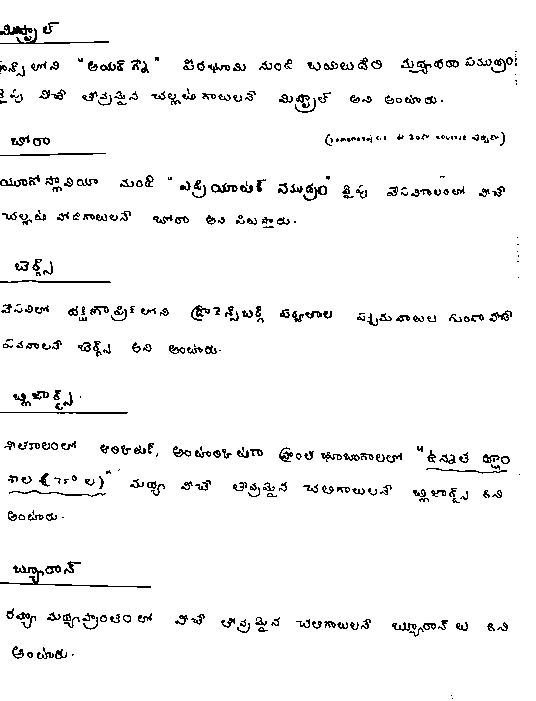 మిస్ట్రాల్
ఫ్రాన్స్ లోని "అయర్ గ్నె" పీఠభూమి నుండి బయలుదేరి మధ్యధరా సముద్రం
వైపు వీచే తీవ్రమైన చల్లటి గాలులనే మిస్ట్రాల్ అని అంటారు.
బోరా
యూగోస్లావియా నుండి "ఎడ్రియాటిక్ సముద్రం" వైపు వేసవికాలంలో వీచే
చల్లటి పొడిగాలులనే బోరా అని పిలుస్తారు.
బెర్గ్స్
వేసవిలో దక్షిణాఫ్రికాలోని డ్రాకెన్స్ బర్గ్ పర్వతాల పశ్చిమ వాలుల గుండా వీచే
పవనాలనే బెర్గ్స్ అని అంటారు.
బ్లిజార్డ్స్.
శీతకాలంలో ఆర్కిటిక్, అంటార్కిటికా ప్రాంత భూభాగాలలో "ఉన్నత
" మధ్య వీచే తీవ్రమైన చలిగాలులనే బ్లిజార్డ్స్ అని
అంటారు.
బ్యూరాన్
రష్యా మధ్యప్రాంతంలో వీచే తీవ్రమైన చలిగాలులనే బ్యూరాన్ లు అని
అంటారు.